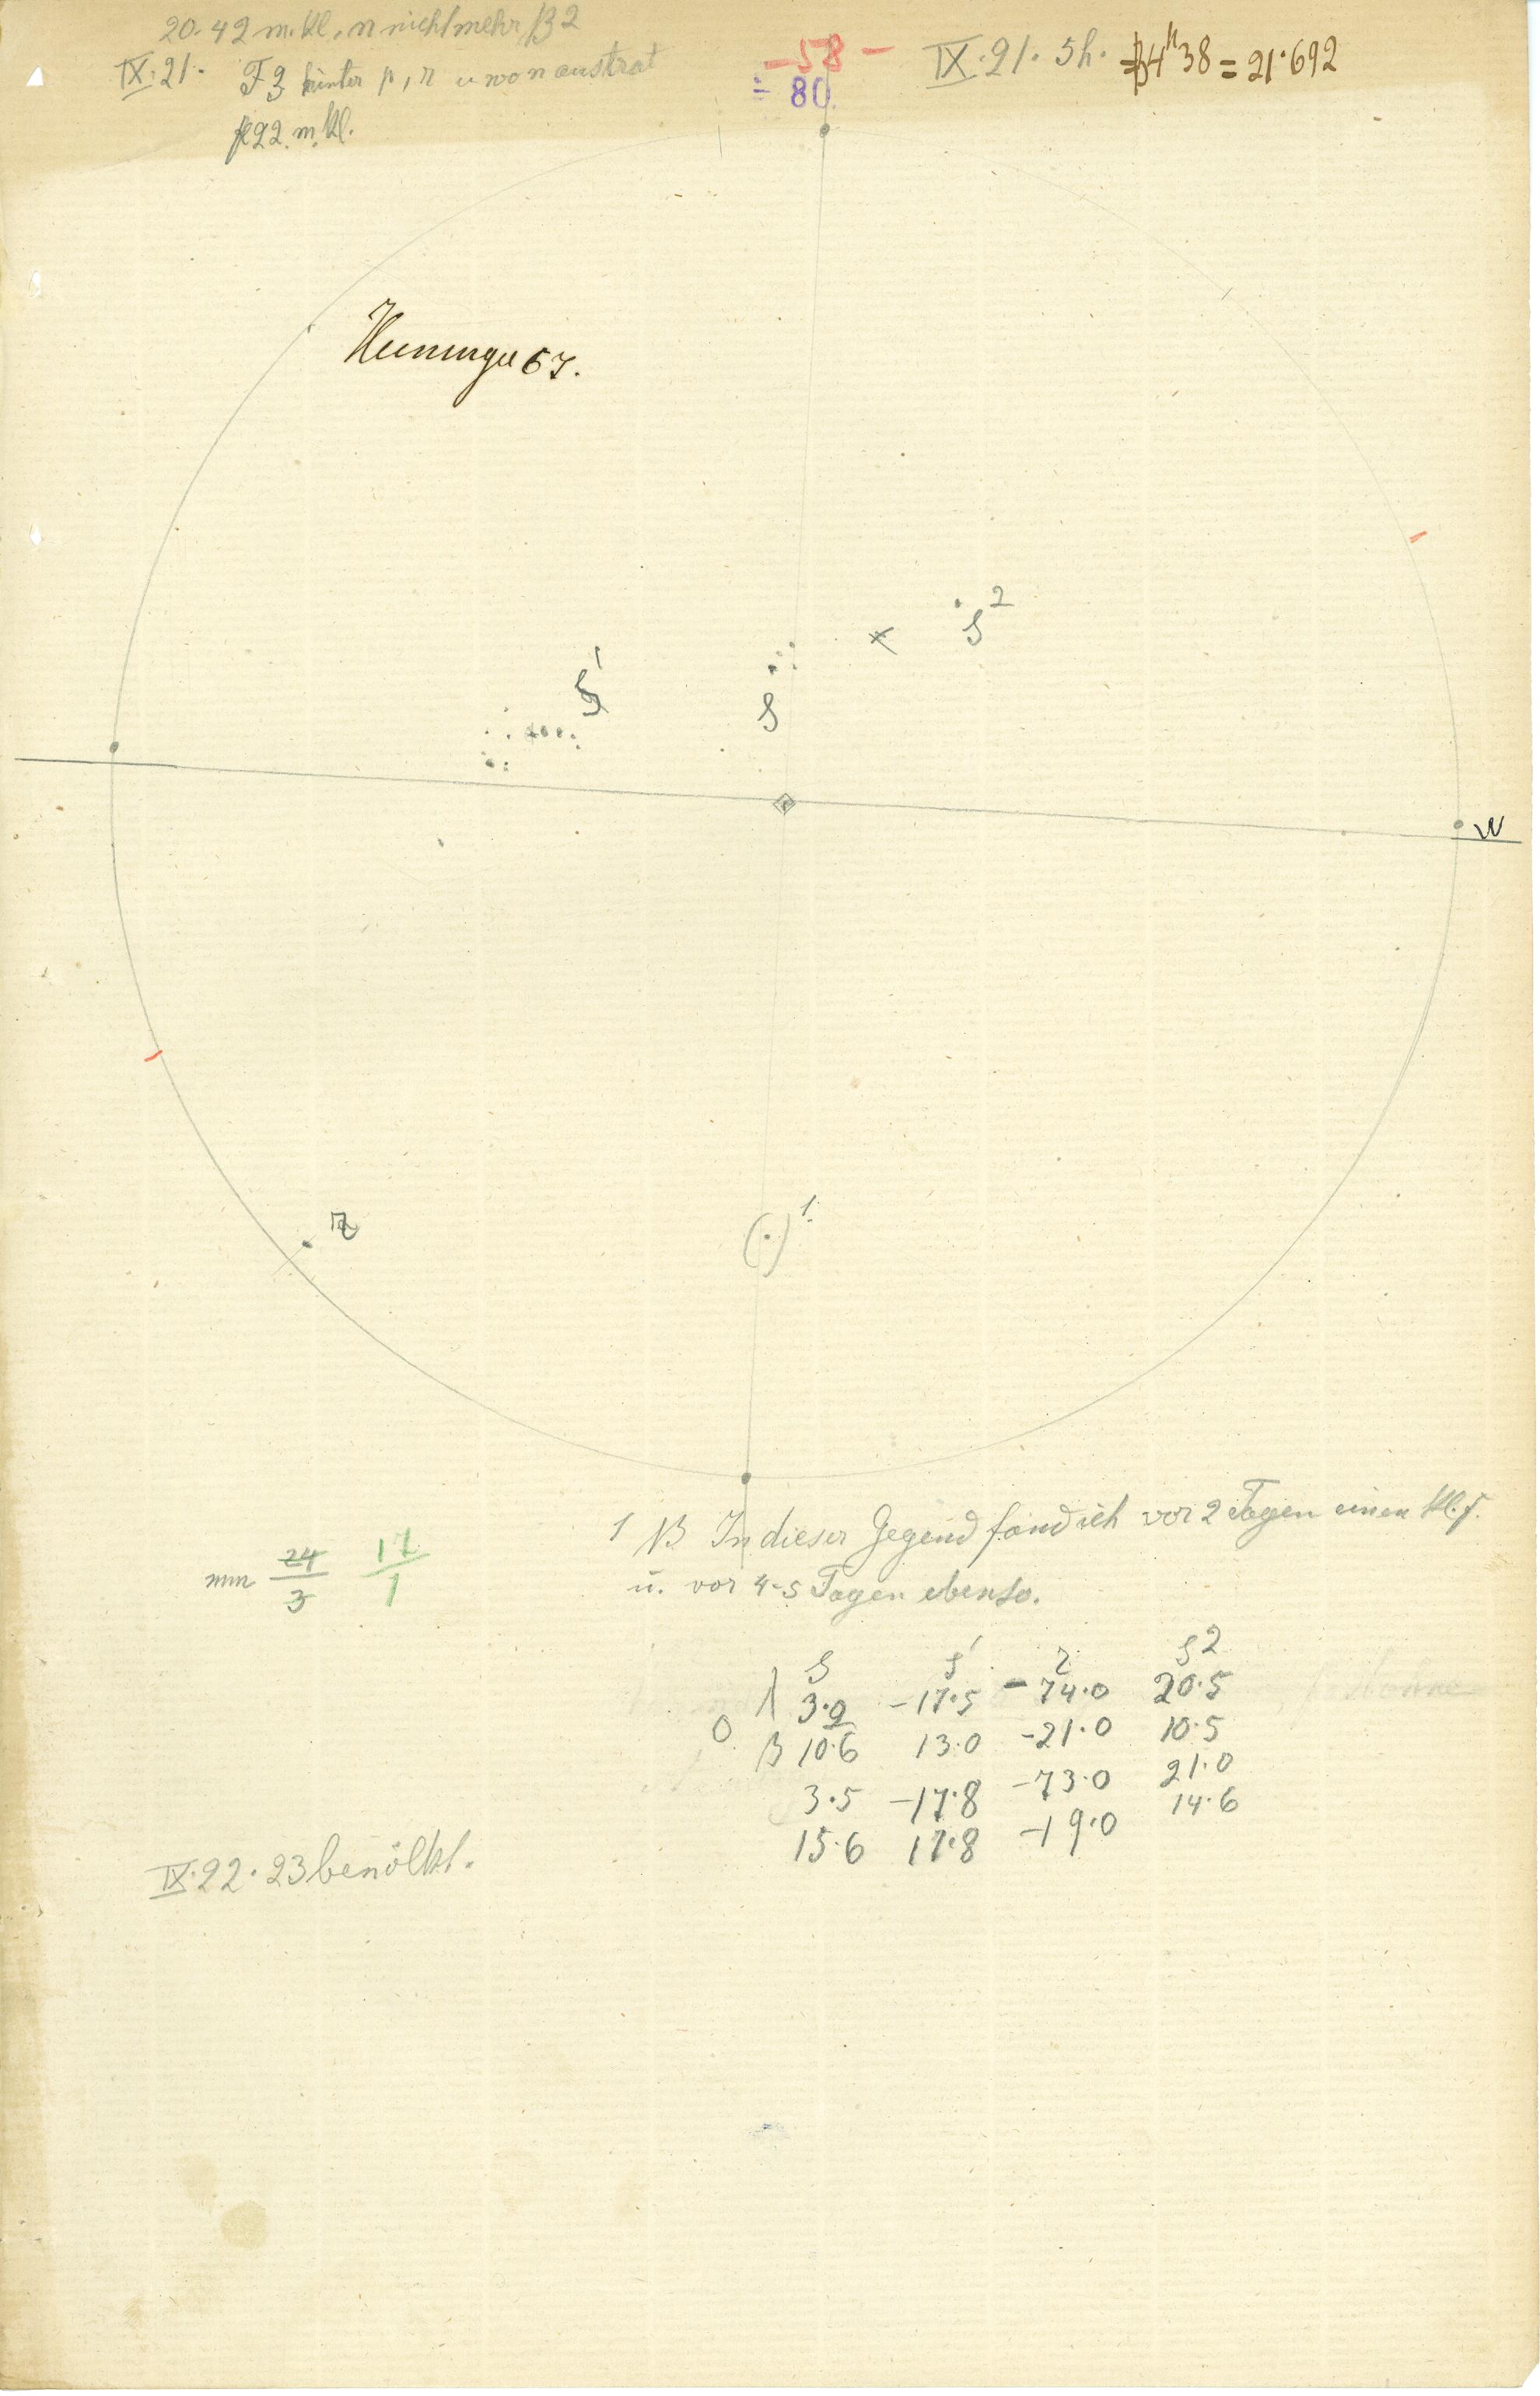 20. 42 m. kl. n nicht mehr β2
IX. 21. F3 hinter p, r u wo n austrat
R22. m. kl.
-58-
= 80.
IX. 21. 5h. 4h38 = 21.692
67.
s1
s
s2
W
r
(.) 1.
1 NB In dieser Gegend fand ich vor 2 Tagen einen kl. f.
u. vor 4-5 Tagen ebenso.
mm 24/3 17/1
s s1 r s2
λ 3.2 -17.5 -74.0 20.5
0 β 10.6 13.0 -21.0 10.5
3.5 -17.8 -73.0 21.0
15.6 17.8 -19.0 14.6
IX. 22. 23 bewölkt.